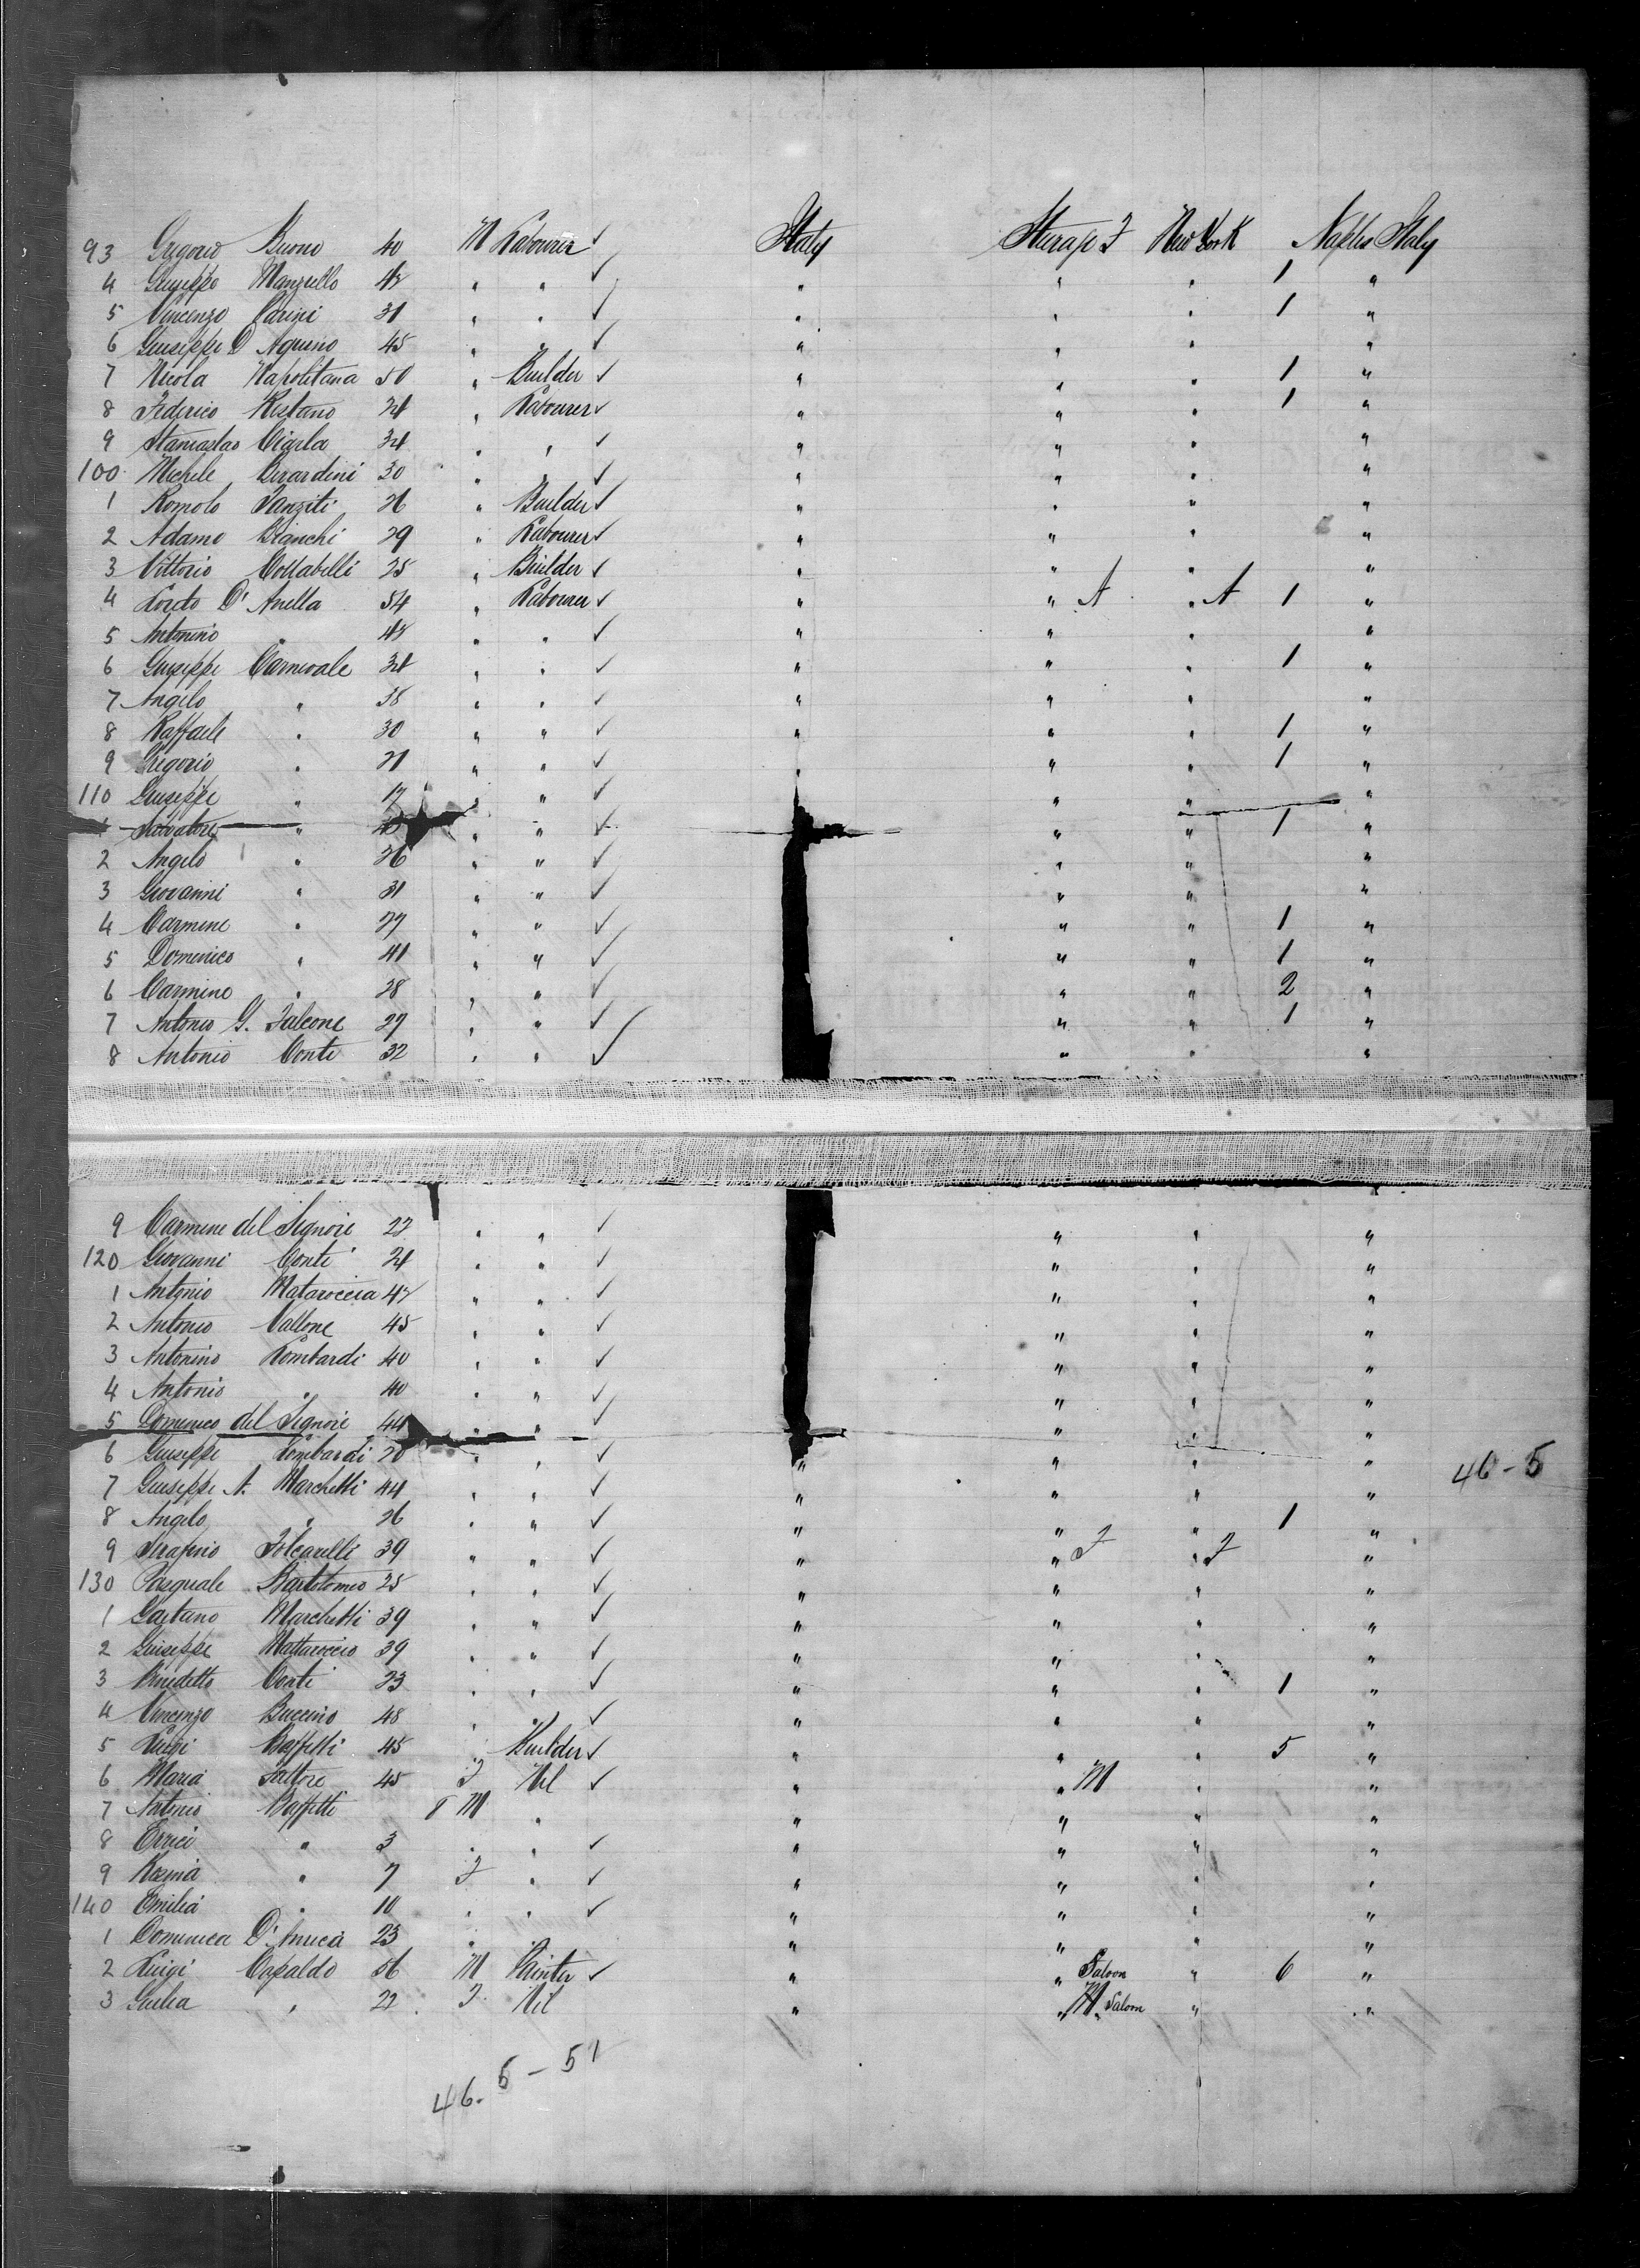 93 Gregorio Buono 40 M Labourer ✓ Italy Steerage F New York Naples Italy
4 Giuseppe Manzello 42 " " ✓ " " " 1 "
5 Vincenzo Carini 31 " " ✓ " " " 1 "
6 Giuseppe D'Aquino 45 " " ✓ " " " "
7 Nicola Napolitana 50 " Builder ✓ " " " 1 "
8 Federico Restano 24 " Labourer ✓ " " " 1 "
9 Stanislao Ciarla 34 " " ✓ " " " "
100 Michele Berardini 30 " " ✓ " " " "
1 Romolo Panziti 26 " Builder ✓ " " " "
2 Adamo Bianchi 29 " Labourer ✓ " " " "
3 Vittorio Collabelli 25 " Builder ✓ " " " "
4 Loreto D' Anella 54 " Labourer ✓ " " A " A 1 "
5 Antonino " 42 " " ✓ " " " "
6 Giuseppe Carnevale 34 " " ✓ " " " 1 "
7 Angelo " 38 " " ✓ " " " "
8 Raffaele " 30 " " ✓ " " " 1 "
9 Gregorio " 21 " " ✓ " " " 1 "
110 Giuseppe " 17 " " ✓ " " "
1 Salvatore " " " ✓ " " 1 "
2 Angelo " 26 " " ✓ " " "
3 Giovanni " 31 " " ✓ " " "
4 Carmine " 27 " " ✓ " " 1 "
5 Domenico " 41 " " ✓ " " 1 "
6 Carmino " 28 " " ✓ " " 2 "
7 Antonio G. Falcone 27 " " ✓ " " 1 "
8 Antonio Conte 32 " " ✓ " " "
9 Carmine del Signore 22 " " ✓ " " "
120 Giovanni Conti 24 " " ✓ " " "
1 Antonio Mataroccia 42 " " ✓ " " "
2 Antonio Vallone 45 " " ✓ " " "
3 Antonino Lombardi 40 " " ✓ " " "
4 Antonio " 40 " " ✓ " " "
5 Domenico del Signore 44 " " ✓ " " "
6 Giuseppe Lombardi 20 " " ✓ " " " "
46-5
7 Giuseppe A. Marchetti 44 " " ✓ " " " "
8 Angelo " 26 " " ✓ " " " 1 "
9 Serafino Folcarelli 39 " " ✓ " " F " F "
130 Pasquale Bartolomeo 25 " " ✓ " " " "
1 Gaetano Marchetti 39 " " ✓ " " " "
2 Giuseppe Mattaroccio 39 " " ✓ " " " "
3 Benedetto Conti 23 " " ✓ " " " 1 "
4 Vincenzo Buccino 48 " " ✓ " " " "
5 Luigi Baffetti 45 " Builder ✓ " " " 5 "
6 Maria Fattore 45 F Nil ✓ " " M " "
7 Antonio Baffetti 8 M " " " " "
8 Errici " 3 " " ✓ " " " "
9 " 7 F " ✓ " " " "
140 Emilia " 10 " " ✓ " " " "
1 Domenica 23 " " " " " "
2 Luigi Capaldo 56 M Painter ✓ " " Saloon " 6 "
3 Giulia " 22 F Nil " " M " Saloon " "
46. 5 - 51